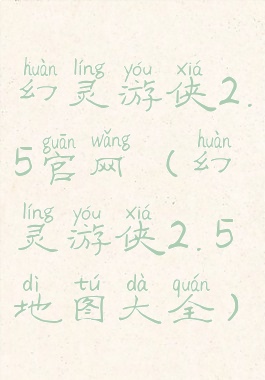 huàn líng yóu xiá
幻灵游侠2.
guān wǎng huàn
5官网(幻
líng yóu xiá
灵游侠2.5
dì tú dà quán
地图大全)